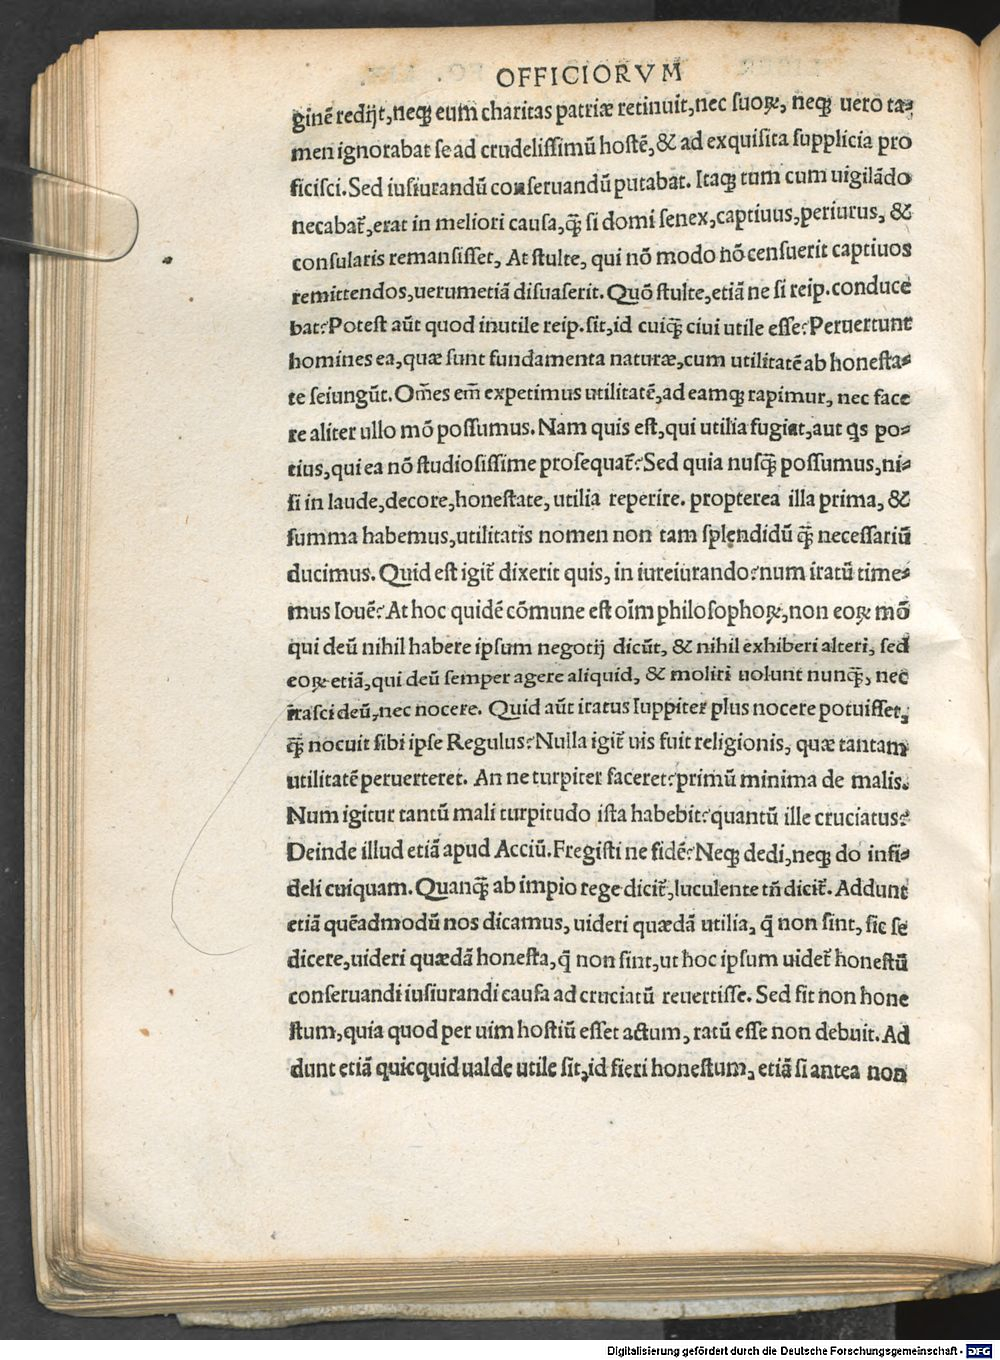 OFFICIORVM
ginē redijt,neqꝫ eum charitas patriæ retinuit,nec suoꝝ, neqꝫ uero ta⸗
men ignorabat se ad crudelissimū hostē,& ad exquisita supplicia pro
ficisci. Sed iusiurandū conseruandū putabat. Itaqꝫ tum cum uigilādo
necabat᷑,erat in meliori causa,q̄ꝫ si domi senex,captiuus,periurus, &
consularis remansisset, At stulte, qui nō modo nō censuerit captiuos
remittendos,uerumetiā disuaserit. Quō stulte,etiā ne si reip. conduce
bat? Potest aūt quod inutile reip. sit,id cuiq̄ꝫ ciui utile esse? Peruertunt
homines ea,quæ sunt fundamenta naturæ,cum utilitatē ab honesta⸗
te seiungūt. Om̄es em̄ expetimus utilitatē,ad eamqꝫ rapimur, nec face
re aliter ullo mō possumus. Nam quis est,qui utilia fugiat,aut ꝗs po⸗
tius,qui ea nō studiosissime prosequat᷑? Sed quia nusq̄ꝫ possumus,ni⸗
si in laude,decore,honestate, utilia reperire. propterea illa prima, &
summa habemus,utilitatis nomen non tam splendidū q̄ꝫ necessariū
ducimus. Quid est igit᷑ dixerit quis, in iureiurando? num iratū time⸗
mus Iouē? At hoc quidē cōmune est oīm philosophoꝝ,non eoꝝ mō
qui deū nihil habere ipsum negotij dicūt, & nihil exhiberi alteri, sed
eoꝝ etiā,qui deū semper agere aliquid, & moliri uolunt nunq̄ꝫ, nec
irasci deū,nec nocere. Quid aūt iratus Iuppiter plus nocere potuisset,
q̄ꝫ nocuit sibi ipse Regulus? Nulla igit᷑ uis fuit religionis, quæ tantam
utilitatē peruerteret. An ne turpiter faceret? primū minima de malis.
Num igitur tantū mali turpitudo ista habebit? quantū ille cruciatus?
Deinde illud etiā apud Acciū. Fregisti ne fidē? Neqꝫ dedi,neqꝫ do infi⸗
deli cuiquam. Quanq̄ꝫ ab impio rege dicit᷑,luculente tn̄ dicit᷑. Addunt
etiā quēadmodū nos dicamus, uideri quædā utilia, q̄ non sint, sic se
dicere,uideri quædā honesta,q̄ non sint,ut hoc ipsum uidet᷑ honestū
conseruandi iusiurandi causa ad cruciatū reuertisse. Sed fit non hone
stum,quia quod per uim hostiū esset actum, ratū esse non debuit. Ad
dunt etiā quicquid ualde utile sit,id fieri honestum, etiā si antea non
Digitalisierung gefördert durch die Deutsche Forschungsgemeinschaft - DFG